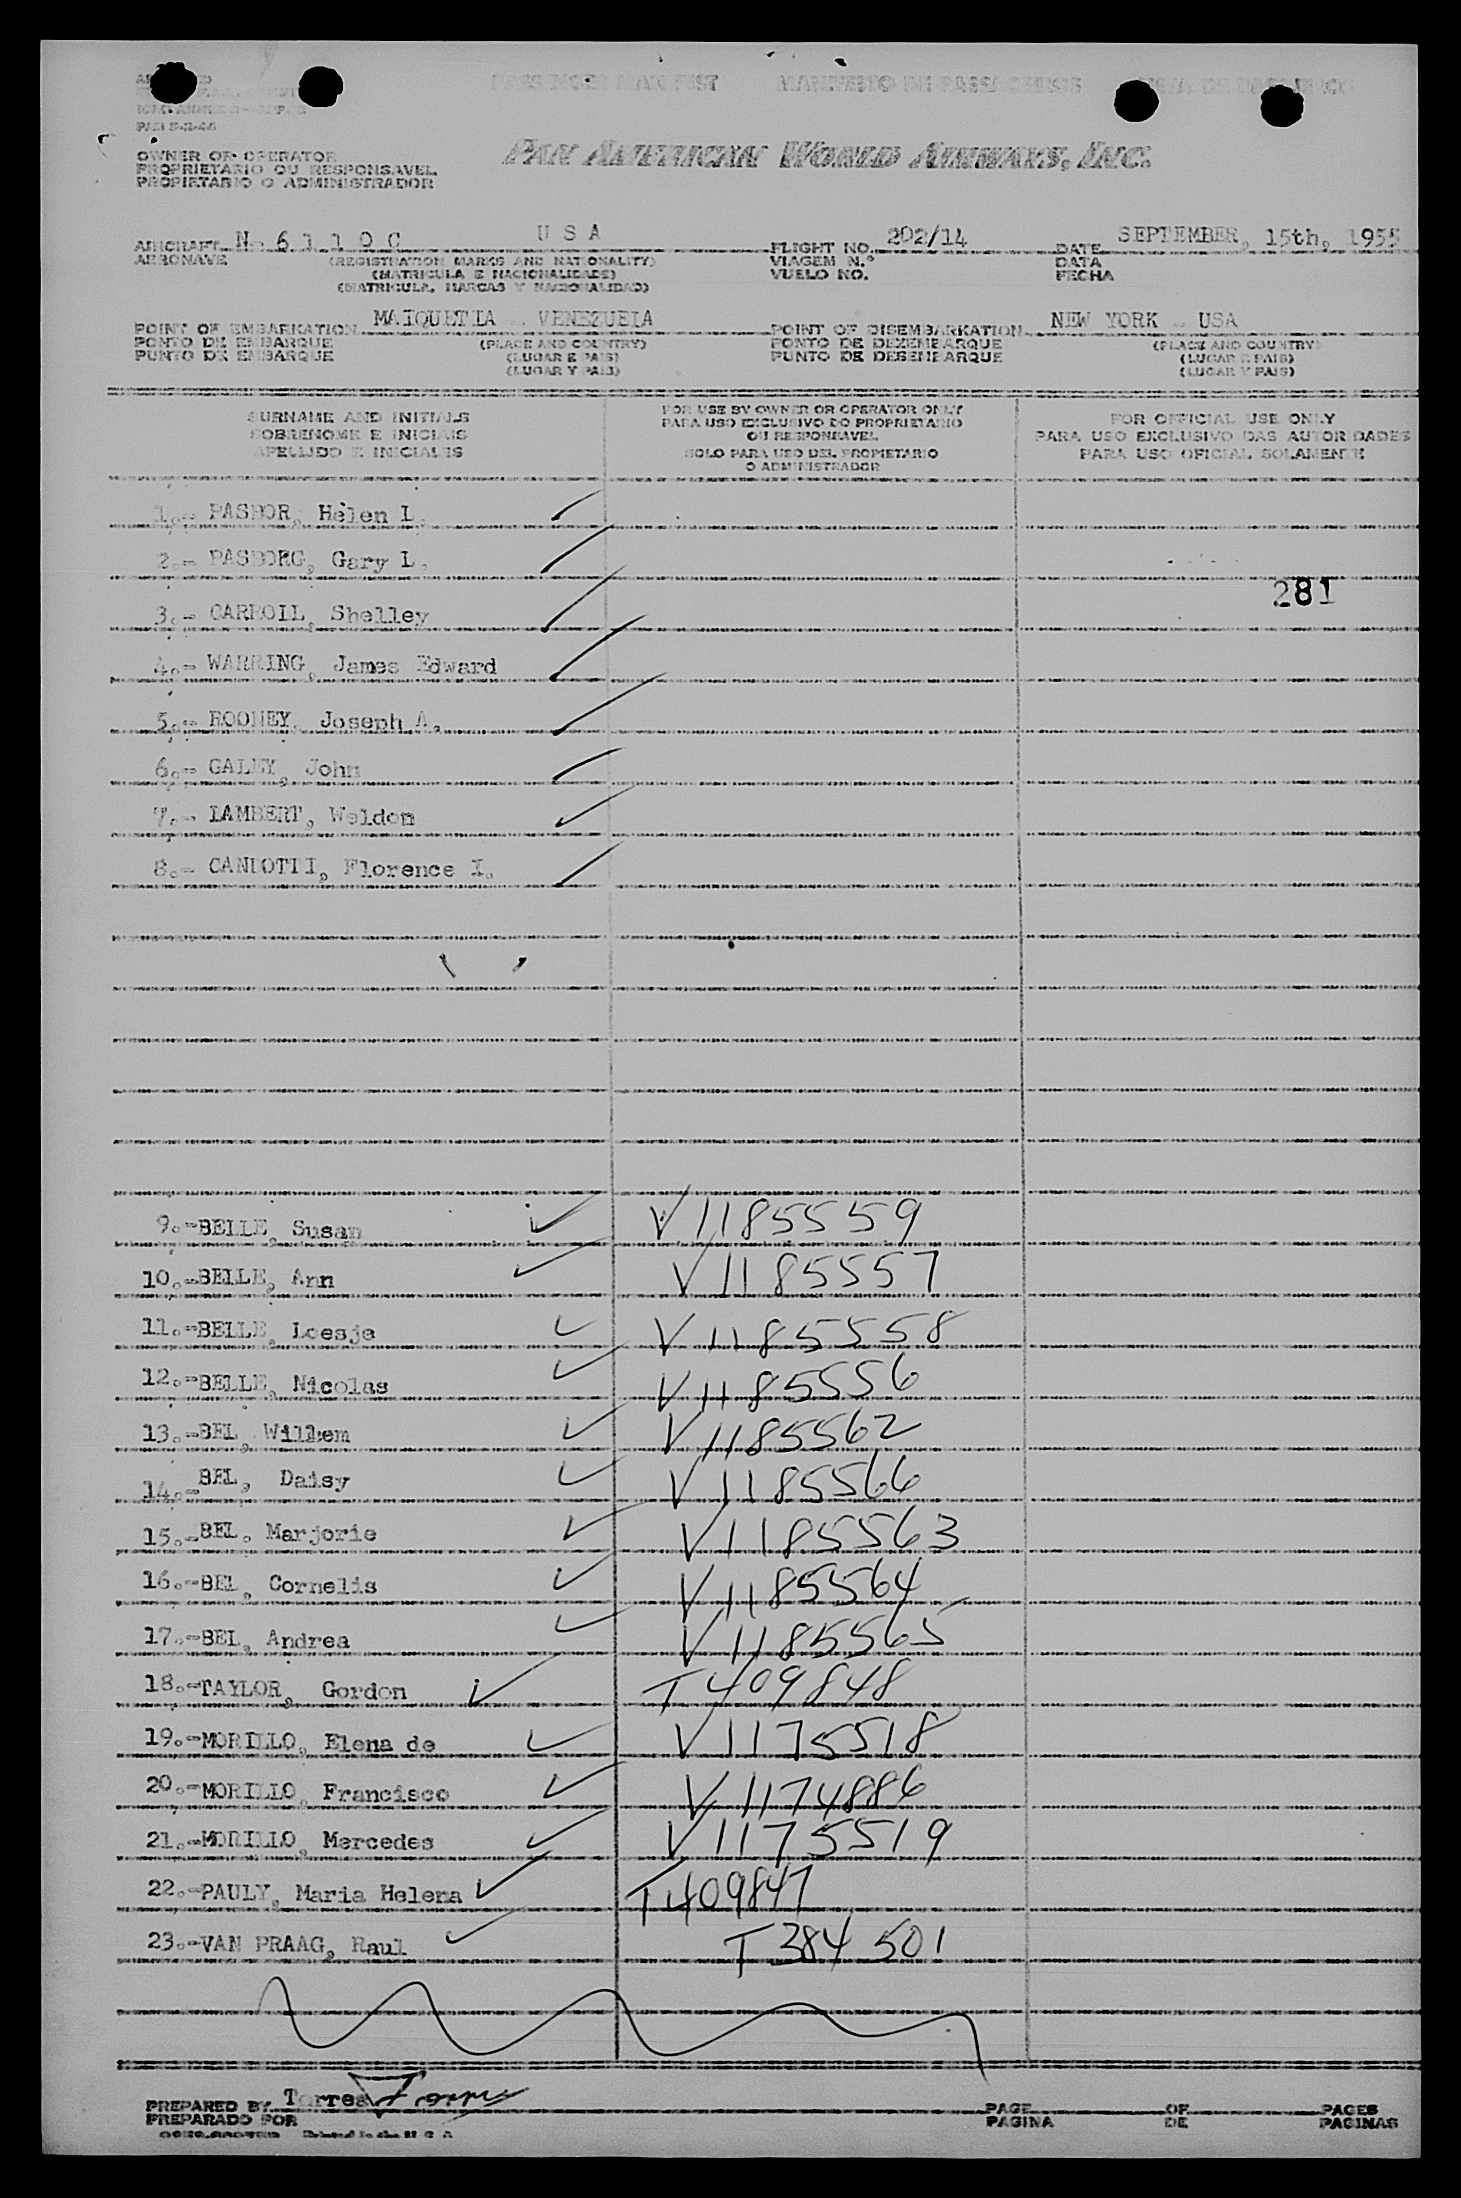 PASSENGER MANIFEST MANIFIESTO DE PASAJEROS
OWNER OR OPERATOR
PROPRIETARIO OU RESPONSAVEL
PROPIETARIO O ADMINISTRADOR
PAN AMERICAN WORLD AIRWAYS, INC.
AIRCRAFT N 6 1 1 0 C U S A FLIGHT NO. 202/14 DATE SEPTEMBER, 15th, 1955
AERONAVE (REGISTRATION MARKS AND NATIONALITY) VIAGEM N.º DATA
(MATRICULA E NACIONALIDADE) VUELO NO. FECHA
(MATRICULA, MARCAS Y NACIONALIDAD)
POINT OF EMBARKATION MAIQUETIA - VENEZUELA POINT OF DISEMBARKATION NEW YORK - USA
PONTO DE EMBARQUE (PLACE AND COUNTRY) PONTO DE DEZEMBARQUE (PLACE AND COUNTRY)
PUNTO DE EMBARQUE (LUGAR E PAIS) PUNTO DE DESEMBARQUE (LUGAR E PAIS)
(LUGAR Y PAIS) (LUGAR Y PAIS)
SURNAME AND INITIALS FOR USE BY OWNER OR OPERATOR ONLY FOR OFFICIAL USE ONLY
SOBRENOME E INICIAIS PARA USO EXCLUSIVO DO PROPRIETARIO PARA USO EXCLUSIVO DAS AUTORIDADES
APELLIDO E INICIALES OU RESPONSAVEL PARA USO OFICIAL SOLAMENTE
SOLO PARA USO DEL PROPIETARIO
O ADMINISTRADOR
1.- Helen L.
2.- PASBORG, Gary L.
281
3.- CARROLL, Shelley
4.- WARRING, James Edward
5.- ROONEY, Joseph A.
6.- GALEY, John
7.- LAMBERT, Weldon
8.- Florence I.
9.-BELLE, Susan V1185559
10.-BELLE, Ann V1185557
11.-BELLE, Loesje V1185558
12.-BELLE, Nicolas V1185556
13.-BEL, Willem V1185562
14.-BEL, Daisy V1185566
15.-BEL, Marjorie V1185563
16.-BEL, Cornelis V1185564
17.-BEL, Andrea V1185565
18.-TAYLOR, Gordon T409848
19.-MORILLO, Elena de V1175518
20.-MORILLO, Francisco V1174886
21.-MORILLO, Mercedes V1175519
22.-PAULY, Maria Helena T409847
23.-VAN PRAAG, Raul T384501
PREPARED BY Torres Torres PAGE OF PAGES
PREPARADO POR PAGINA DE PAGINAS
Printed in the U S A